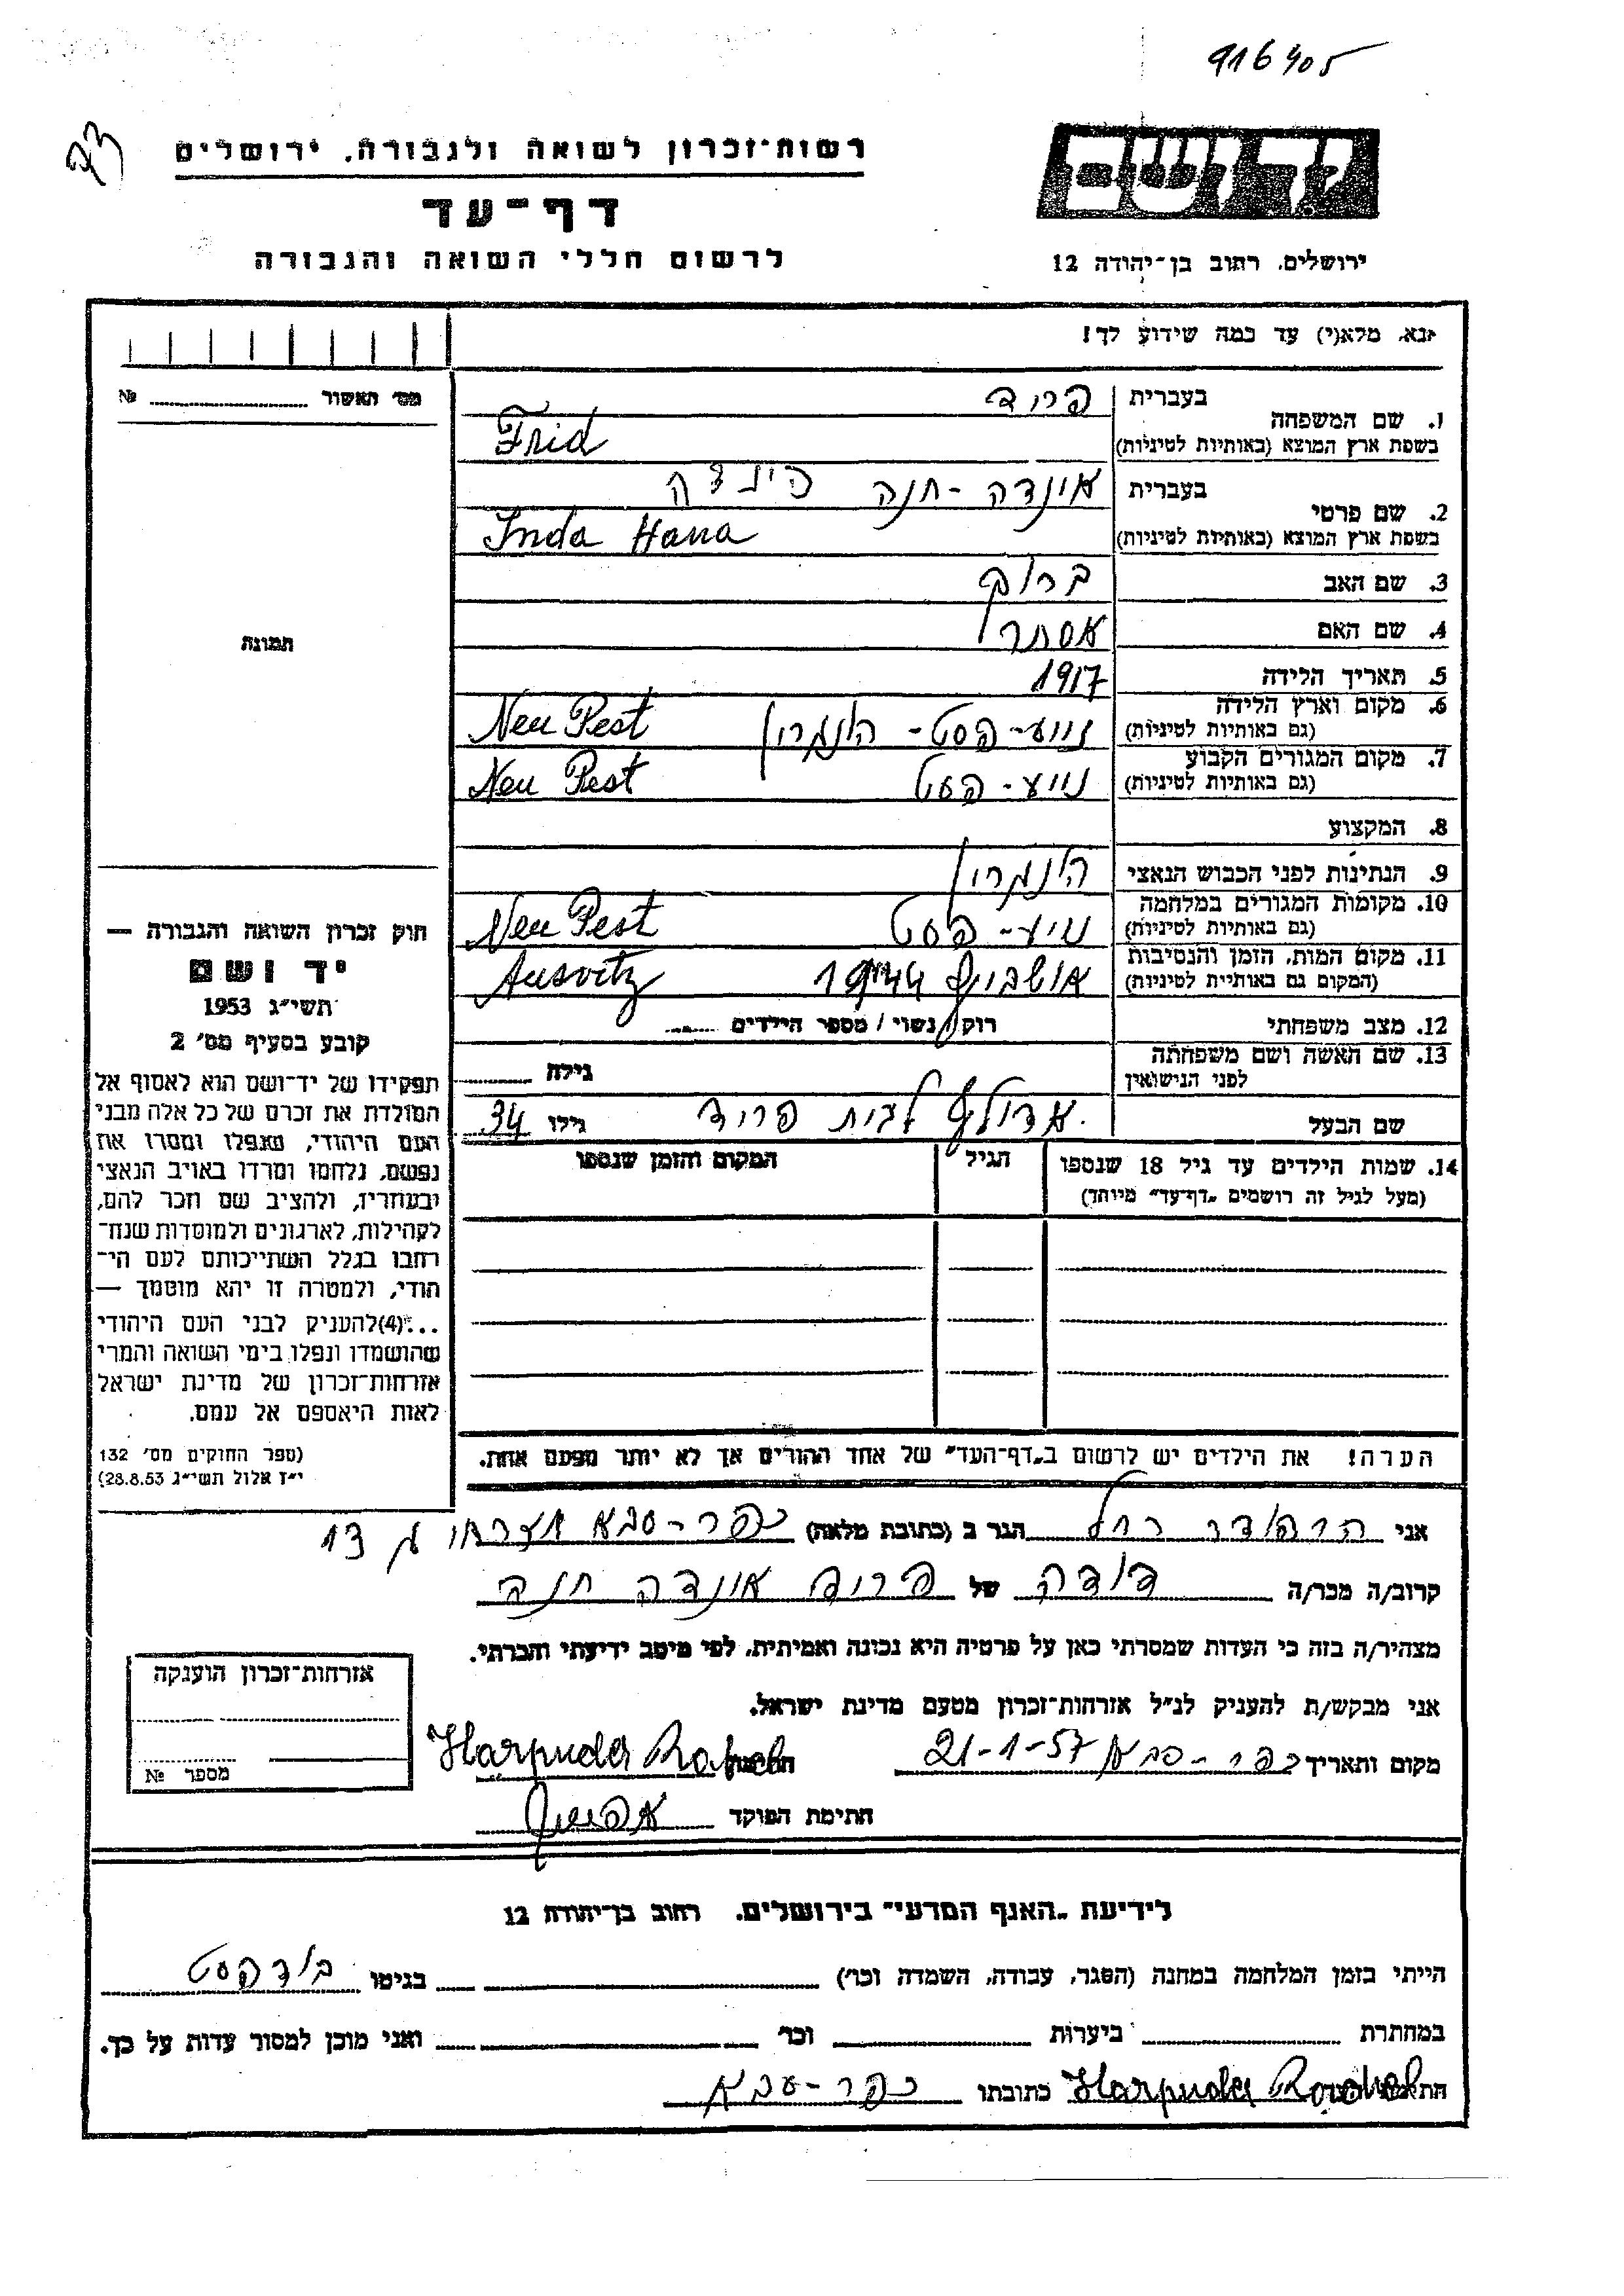 916405
רשות־זכרון לשואה ולגבורה, ירושלים
דף־עד
לרשום חללי השואה והגבורה
יד ושם
ירושלים, רחוב בן־יהודה 12
נא, מלא(י) עד כמה שידוע לך!
מס׳ תאשור № 
1. שם המשפחה
בעברית פריד
בשפת ארץ המוצא (באותיות לטיניות) Frid
2. שם פרטי
בעברית אינדה - חנה הינדה
בשפת ארץ המוצא (באותיות לטיניות) Inda Hana
3. שם האב ברוך
4. שם האם אסתר
5. תאריך הלידה 1917
6. מקום וארץ הלידה
(גם באותיות לטיניות) נייע-פסט - הונגרין Neu Pest
7. מקום המגורים הקבוע
(גם באותיות לטיניות) נייע-פסט Neu Pest
8. המקצוע
9. הנתינות לפני הכבוש הנאצי הונגרין
10. מקומות המגורים במלחמה
(גם באותיות לטיניות) נייע-פסט Neu Pest
11. מקום המות, הזמן והנסיבות
(המקום גם באותיות לטיניות) אושביץ 1944 Ausvitz
12. מצב משפחתי רוק/נשוי/מספר הילדים
13. שם האשה ושם משפחתה
לפני הנישואין גילה
שם הבעל אדולף לבית פריד גילו 34
14. שמות הילדים עד גיל 18 שנספו הגיל המקום והזמן שנספו
(מעל לגיל זה רושמים „דף־עד״ מיוחד)
הערה! את הילדים יש לרשום ב„דף־העד״ של אחד ההורים אך לא יותר מפעם אחת.
תמונה
חוק זכרון השואה והגבורה —
יד ושם
תשי״ג 1953
קובע בסעיף מס׳ 2
תפקידו של יד־ושם הוא לאסוף אל
המולדת את זכרם של כל אלה מבני
העם היהודי, שנפלו ומסרו את
נפשם, נלחמו ומרדו באויב הנאצי
ובעוזריו, ולהציב שם וזכר להם,
לקהילות, לארגונים ולמוסדות שנח־
רבו בגלל השתייכותם לעם הי־
הודי, ולמטרה זו יהא מוסמך —
...(4) להעניק לבני העם היהודי
שהושמדו ונפלו בימי השואה והמרי
אזרחות־זכרון של מדינת ישראל
לאות היאספם אל עמם.
(ספר החוקים מס׳ 132
י״ז אלול תשי״ג 28.8.53)
אני הרפודר רחל הגר ב (כתובת מלאה) כפר-סבא 13
קרוב/ה מכר/ה דודה של פריד אינדה חנה
מצהיר/ה בזה כי העדות שמסרתי כאן על פרטיה היא נכונה ואמיתית, לפי מיטב ידיעתי והכרתי.
אני מבקש/ת להעניק לנ״ל אזרחות־זכרון מטעם מדינת ישראל.
מקום ותאריך כפר-סבא 21-1-57 Harpuder Rachel
חתימת הפוקד
אזרחות־זכרון הוענקה
מספר №
לידיעת „האגף המדעי״ בירושלים, רחוב בן־יהודה 12
הייתי בזמן המלחמה במחנה (הסגר, עבודה, השמדה וכו׳) בגיטו בודפסט
במחתרת ביערות וכו׳ ואני מוכן למסור עדות על כך.
Harpuder Rachel כתובתו כפר-סבא